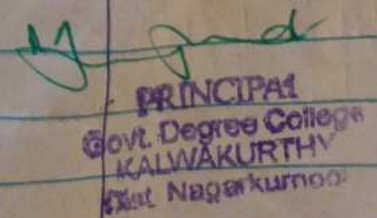 PRINCIPAL
Govt. Degree College
KALWAKURTHY
Dist Nagarkurnool